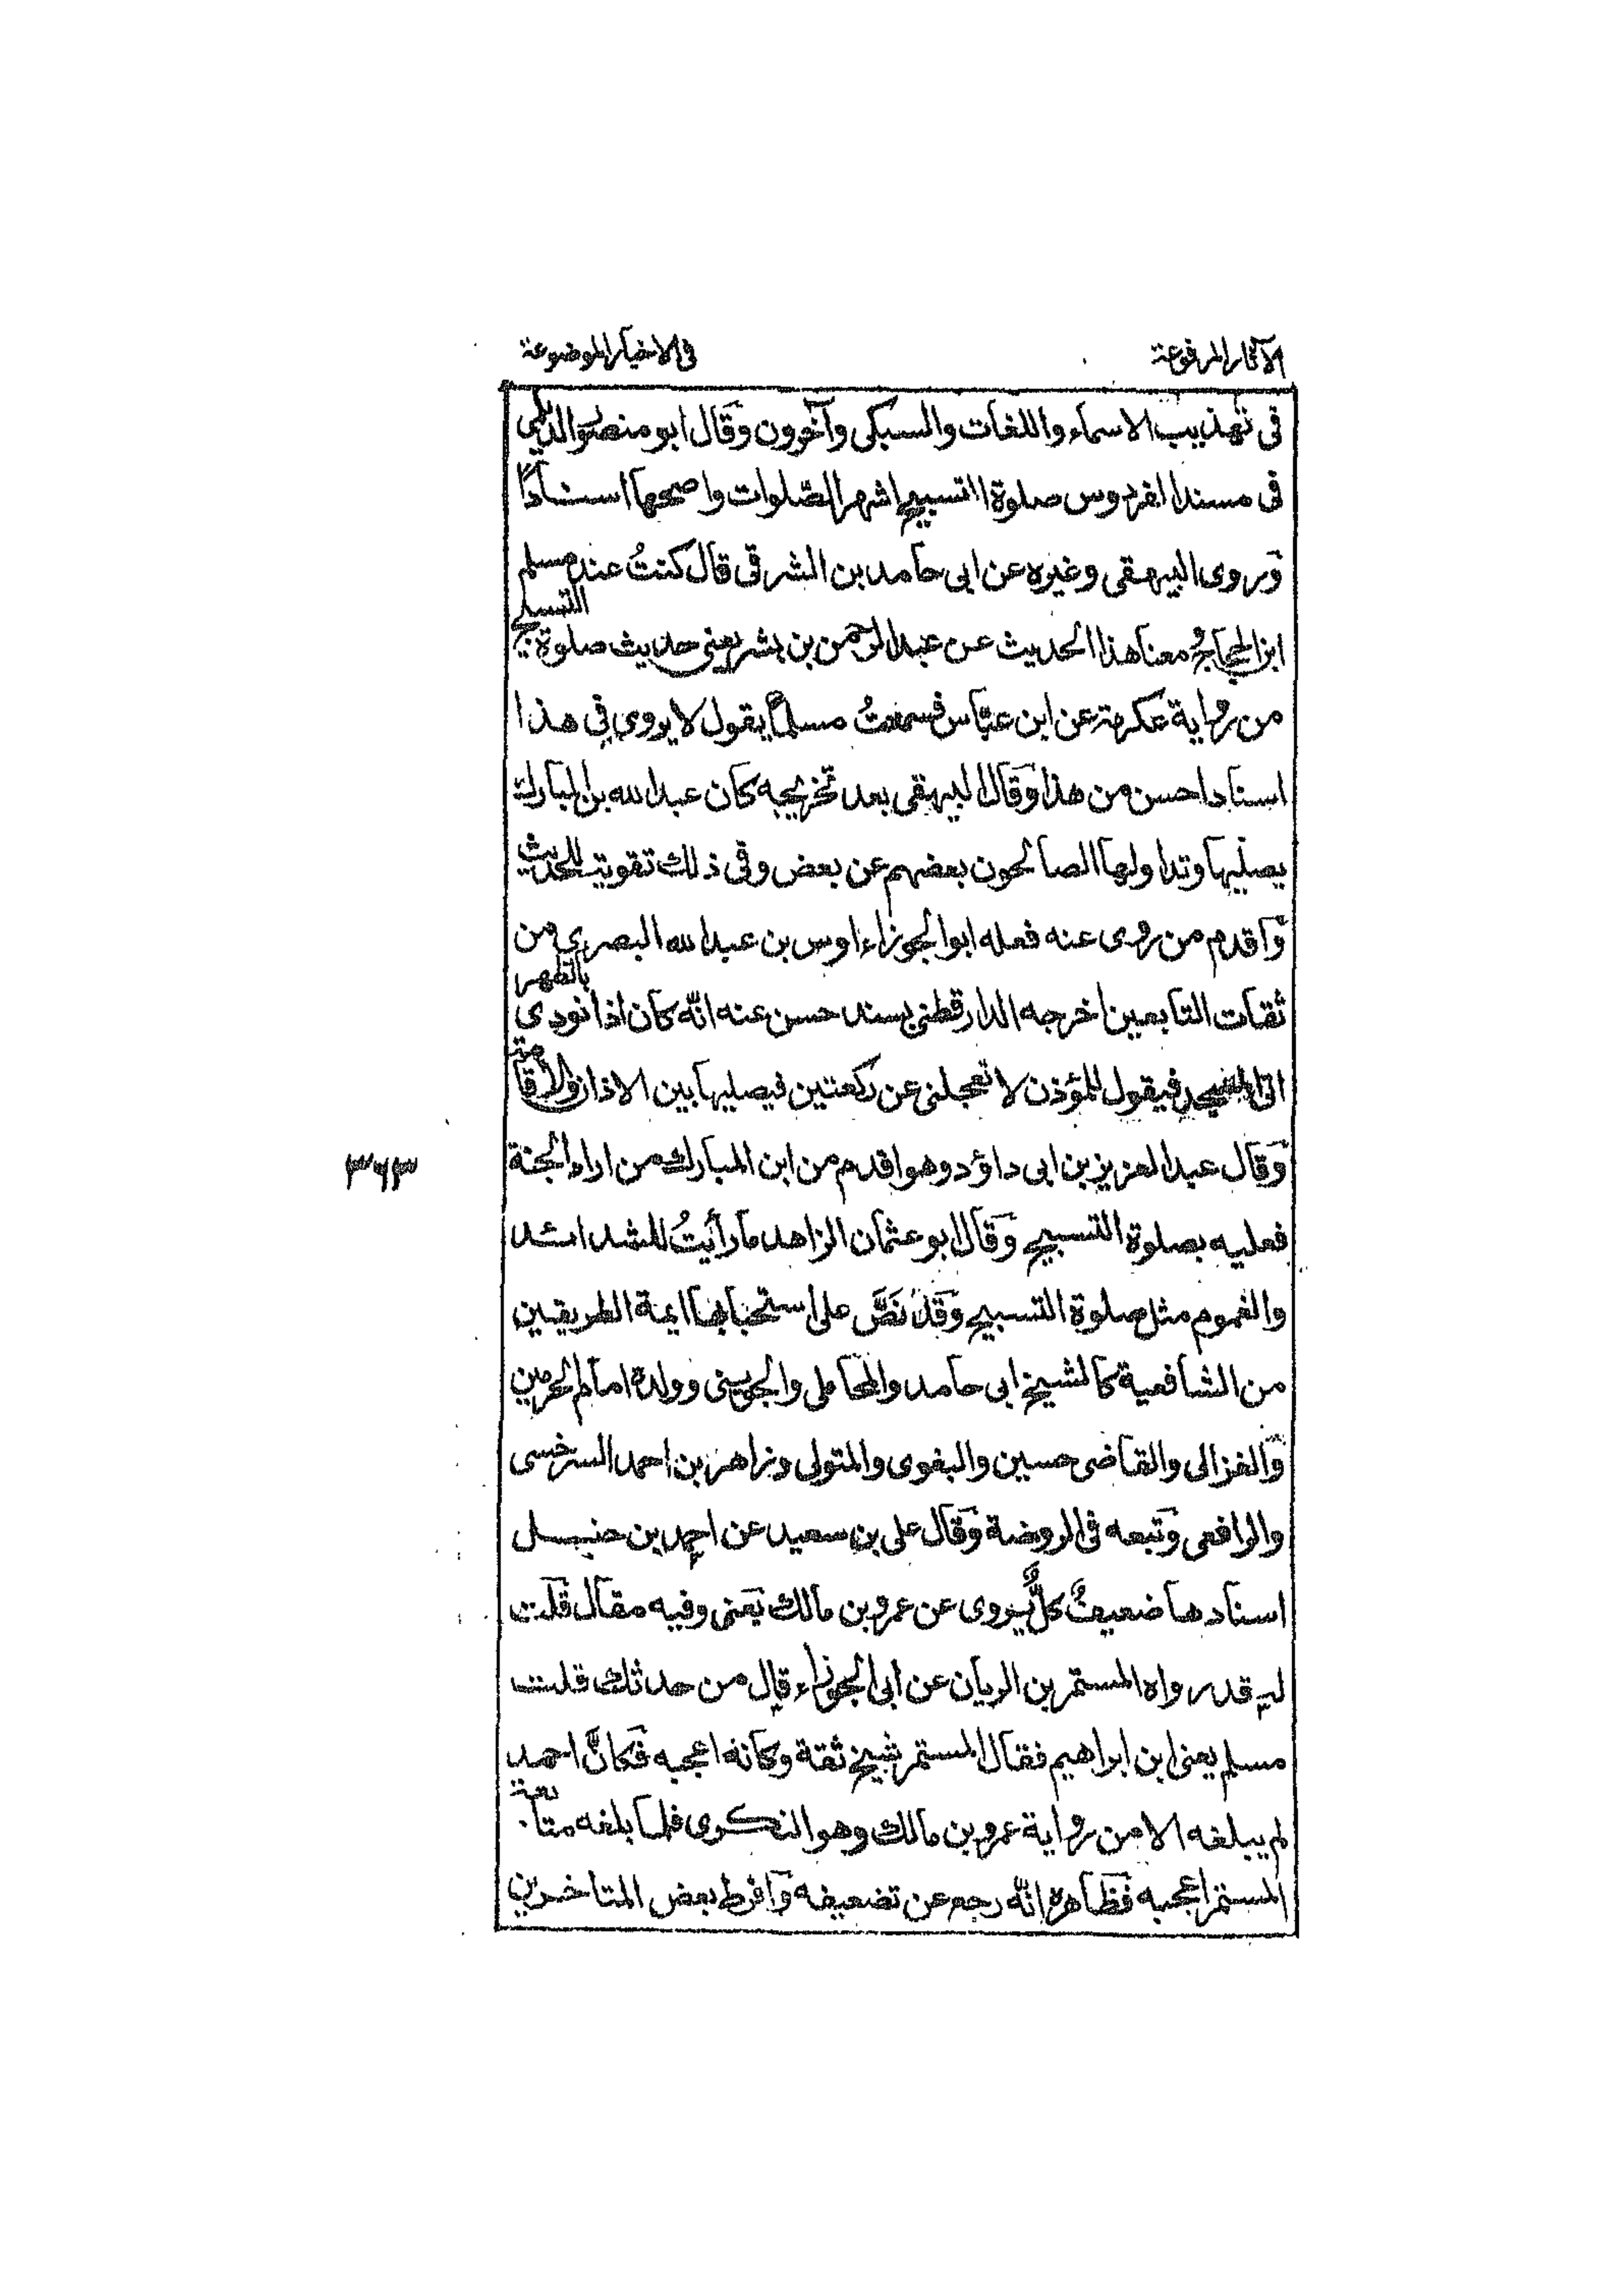 الآثار المرفوعة
فى الاخبار الموضوعة
فى تهذيب الاسماء واللغات والسبكى وآخرون وقال ابو منصور الديلمى
فى مسند الفردوس صلوة التسبيح اشهر الصلوات واصححها اسنادًا
وروى البيهقى وغيره عن ابى حامد بن الشرقى قال كنتُ عند مسلم
ابن الحجاج ومعنا هذا الحديث عن عبد الرحمن بن بشر يعنى حديث صلوة التسبيح
من رواية عكرمة عن ابن عبّاس فسمعتُ مسلمًا يقول لا يروى فى هذا
اسناد احسن من هذا وقال البيهقى بعد تخريجه كان عبد الله بن المبارك
يصليها وتداولها الصالحون بعضهم عن بعض وفى ذلك تقوية للحديث
واقدم من روى عنه فعله ابو الجوزاء اوس بن عبد الله البصرى من
ثقات التابعين اخرجه الدارقطنى بسند حسن عنه انّه كان اذا نودى بالظهر
اتى المسجد فيقول للمؤذن لا تعجلنى عن ركعتين فيصليها بين الاذان والاقامة
وقال عبد العزيز بن ابى داؤد وهو اقدم من ابن المبارك من اراد الجنة
فعليه بصلوة التسبيح وقال ابو عثمان الزاهد ما رأيتُ للشدائد
والغموم مثل صلوة التسبيح وقد نَصَّ على استحبابها ايمة الطريقين
من الشافعية كالشيخ ابى حامد والمحاملى والجوينى وولده امام الحرمين
والغزالى والقاضى حسين والبغوى والمتولى وزاهر بن احمد السرخسى
والرافعى وتبعه فى الروضة وقال على بن سعيد عن احمد بن حنبل
اسنادها ضعيفٌ كلٌّ يروى عن عمرو بن مالك يعنى وفيه مقال قلت
له قد رواه المستمر بن الريان عن ابى الجوزاء قال من حدثك قلت
مسلم يعنى ابن ابراهيم فقال المستمر شيخ ثقة وكانه اعجبه فكانَّ احمد
لم يبلغه الا من رواية عمرو بن مالك وهو النكرى فلما بلغه متابعة
المستمر اعجبه فظاهره انّه رجع عن تضعيفه وافرط بعض المتاخرين
٣٦٣